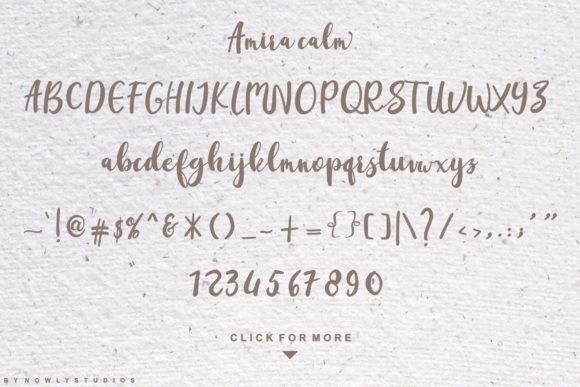 Amira calm
ABCDEFGHIJKLMNOPQRSTUVWXYZ
abcdefghijklmnopqrstuvwxyz
~`!@#$%^&*()_-+={}[]|\?/<>,.:;'"
1234567890
CLICK FOR MORE
BYNOWLYSTUDIOS